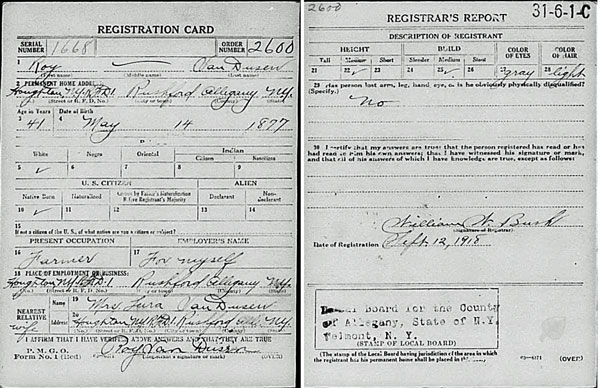 REGISTRATION CARD
SERIAL NUMBER 1668 ORDER NUMBER 2600
1 Roy — Van Dusen
(First name) (Middle name) (Last name)
2 PERMANENT HOME ADDRESS:
Houghton N.Y. R.F.D. 1 Rushford Allegany N.Y.
(No.) (Street or R. F. D. No.) (City or town) (County) (State)
Age in Years Date of Birth
3 41 4 May 14 1877
(Month.) (Day.) (Year.)
White Negro Oriental Indian
Citizen Noncitizen
5 ✓ 6 7 8 9
U. S. CITIZEN ALIEN
Native Born Naturalized Citizen by Father's Naturalization Before Registrant's Majority Declarant Non-declarant
10 ✓ 11 12 13 14
15
If not a citizen of the U. S., of what nation are you a citizen or subject?
PRESENT OCCUPATION EMPLOYER'S NAME
16 Farmer 17 For myself
18 PLACE OF EMPLOYMENT OR BUSINESS:
Houghton N.Y. R.F.D. 1 Rushford Allegany N.Y.
(No.) (Street or R. F. D. No.) (City or town) (County) (State)
NEAREST RELATIVE Name 19 Mrs. Van Dusen
wife Address 20 Houghton N.Y. R.F.D. 1 Rushford Allegany N.Y.
(No.) (Street or R. F. D. No.) (City or town) (County) (State)
I AFFIRM THAT I HAVE VERIFIED ABOVE ANSWERS AND THAT THEY ARE TRUE
P. M. G. O.
Form No. 1 (Red) Roy Van Dusen (OVER)
2600
REGISTRAR'S REPORT 31-6-1-C
DESCRIPTION OF REGISTRANT
HEIGHT BUILD COLOR OF EYES COLOR OF HAIR
Tall Medium Short Slender Medium Stout
21 22 ✓ 23 24 25 ✓ 26 27 gray 28 light
29 Has person lost arm, leg, hand, eye, or is he obviously physically disqualified?
(Specify.) No
30 I certify that my answers are true; that the person registered has read or has
had read to him his own answers; that I have witnessed his signature or mark,
and that all of his answers of which I have knowledge are true, except as follows:
William W. Bush
(Signature of Registrar)
Date of Registration Sept. 12, 1918
Board for the County
of Allegany, State of N.Y.
Belmont, N. Y.
(STAMP OF LOCAL BOARD)
(The stamp of the Local Board having jurisdiction of the area in which
the registrant has his permanent home shall be placed in this box.)
(OVER)